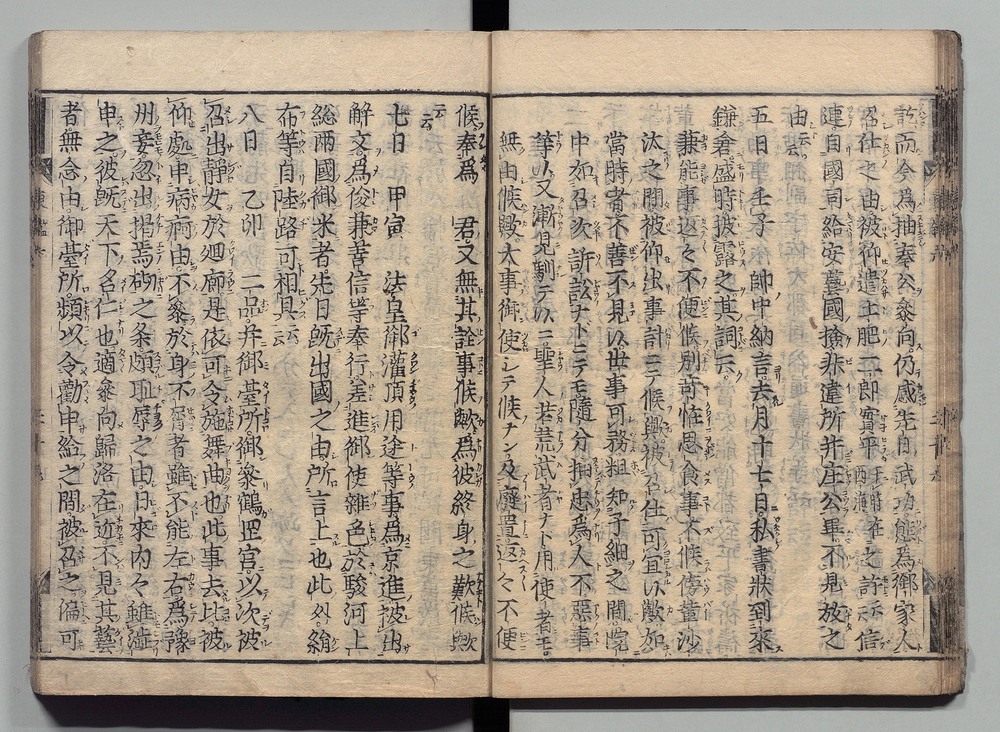 訖而今爲抽奉公參向仍感先日武功態爲御家人
召仕之由被仰遣土肥二郎實平于時在西海之許云信
連自國司給安藝國撿非違所并庄公畢不見放之
由云云
五日　壬子　帥中納言去月十七日私書狀到來
鎌倉盛時披露之其詞云
兼能事返々不便候別苛恠思食事不候傍輩沙
汰之間被仰出事計ニテ候歟被召仕可宜以歟加
當時者不善不見以世事可務粗知子細之間院
中如召次訴訟ナトニテモ隨分抽忠爲人不惡事
等以又漸見馴テ以二聖人若荒武者ナト用使者モ
無由候歟大事御使シテ候ナン及癈置返々不便
候奉爲　君又無其詮事候歟爲彼終身之歎候歟
云云
七日　甲寅　法皇御灌頂用途等事爲京進被出
解文爲俊兼善信等奉行差進御使雜色於駿河上
総兩國御米者先日既出國之由所言上也此外絹
布等自陸路可相具云云
八日　乙卯　二品并御臺所御參鶴罡宮以次被
召出靜女於廻廊是依可令施舞曲也此事去比被
仰處申病痾由不參於身不肖者雖不能左右爲豫
州妾忽出掲焉砌之条頗耻辱之由日來内々雖澁
申之彼既天下名仁也適參向歸洛在近不見其藝
者無念由御臺所頻以令勸申給之間被召之偏可